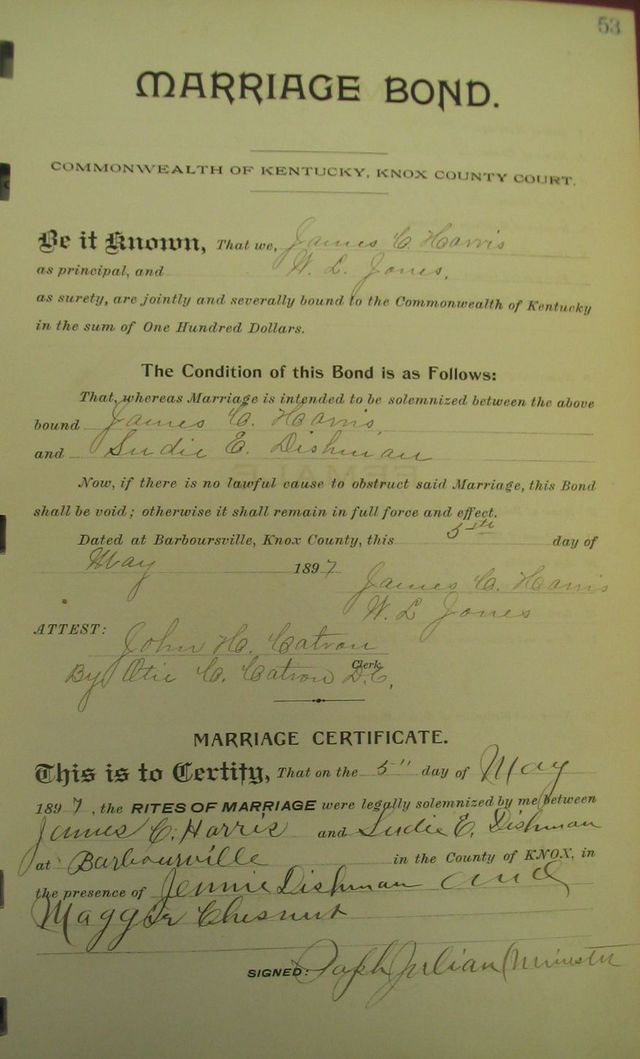 53
MARRIAGE BOND.
COMMONWEALTH OF KENTUCKY, KNOX COUNTY COURT.
Be it Known, That we, James C. Harris
as principal, and W. L. Jones,
as surety, are jointly and severally bound to the Commonwealth of Kentucky
in the sum of One Hundred Dollars.
The Condition of this Bond is as Follows:
That, whereas Marriage is intended to be solemnized between the above
bound James C. Harris,
and Sudie E. Dishman
Now, if there is no lawful cause to obstruct said Marriage, this Bond
shall be void; otherwise it shall remain in full force and effect.
Dated at Barboursville, Knox County, this 5th day of
May 1897
James C. Harris
W. L Jones
ATTEST:
John H. Catron
Clerk
By Otic C. Catron D.C.
MARRIAGE CERTIFICATE.
This is to Certify, That on the 5" day of May
1897, the RITES OF MARRIAGE were legally solemnized by me between
James C. Harris and Sudie E. Dishman
at Barbourville in the County of KNOX, in
the presence of Jennie Dishman and
Maggie Chesnut
SIGNED: Julian Minister